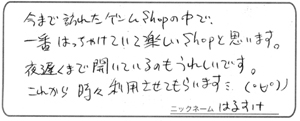 今まで訪れたゲームShopの中で、
一番はっちゃけていて楽しいShopと思います。
夜遅くまで開いているのもうれしいです。
これから時々利用させてもらいますミ(°∀°)
ニックネーム はるすけ